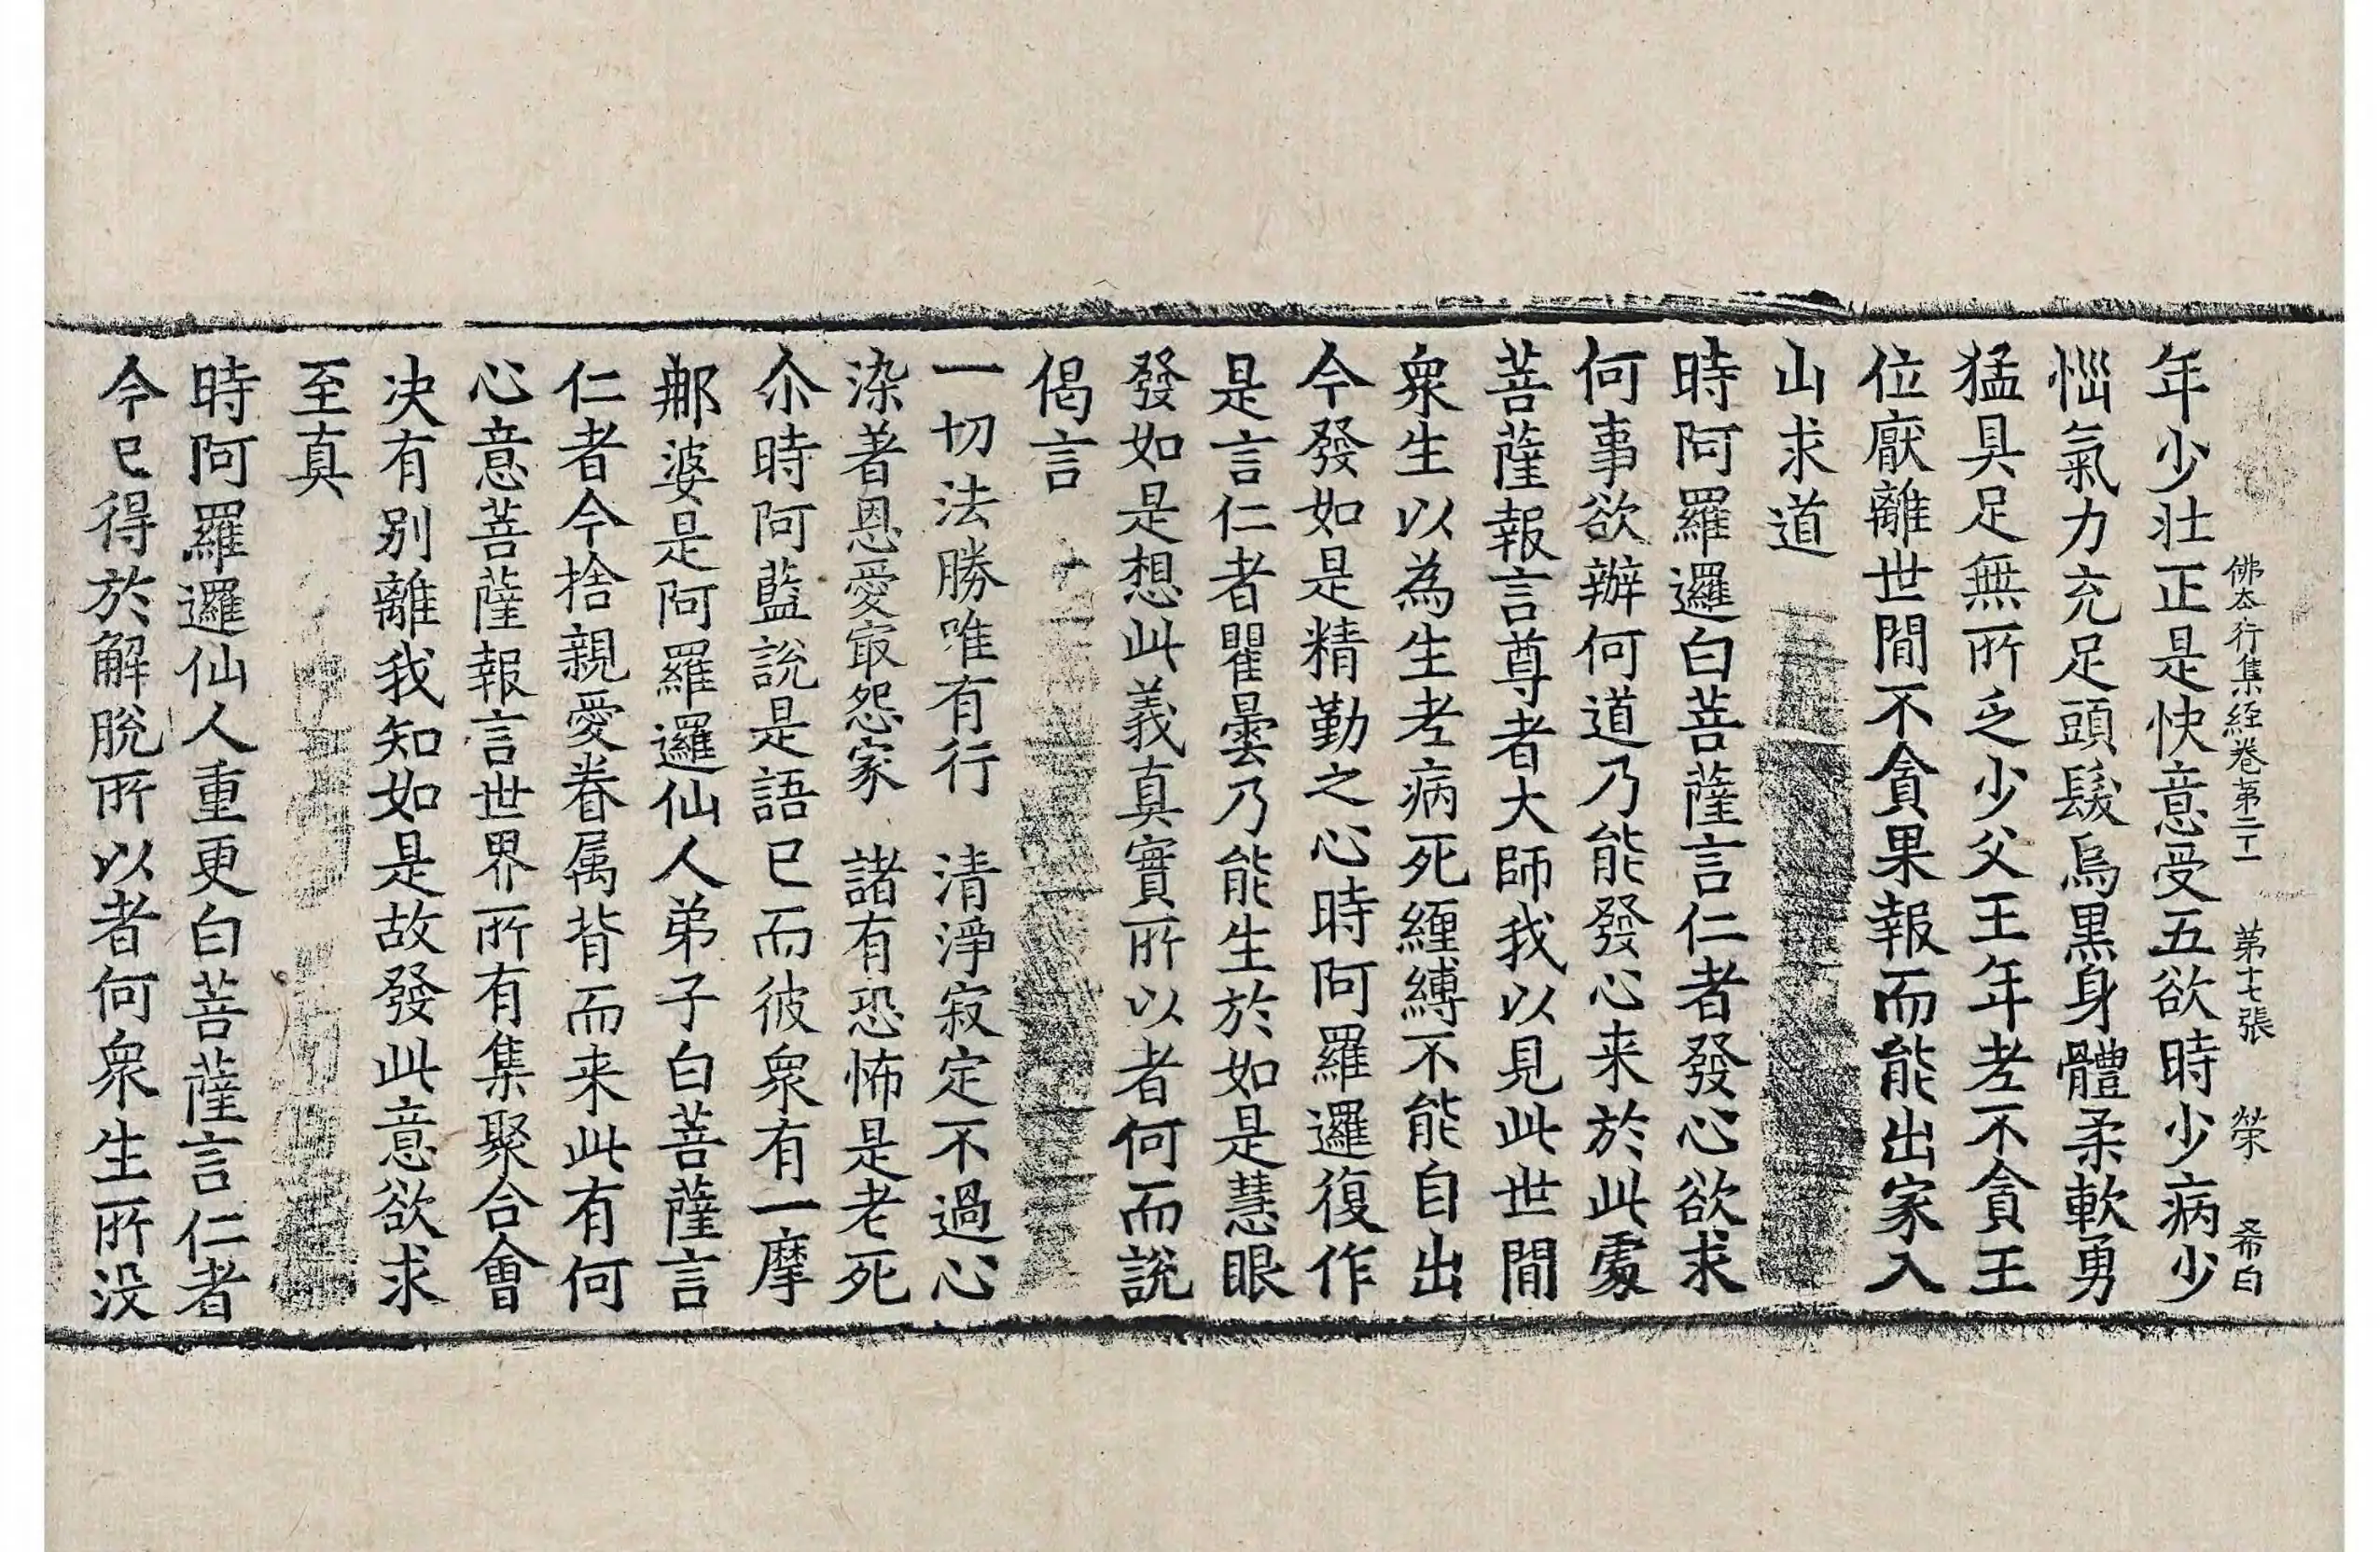 佛本行集経卷第二十一　第十七張　榮　希白
年少壮正是快意受五欲時少病少
惱氣力充足頭髮烏黒身體柔軟勇
猛具足無所乏少父王年老不貪王
位猒離世間不貪果報而能出家入
山求道
時阿羅邏白菩薩言仁者發心欲求
何事欲辦何道乃能發心来於此處
菩薩報言尊者大師我以見此世間
衆生以為生老病死纒縛不能自出
今發如是精勤之心時阿羅邏復作
是言仁者瞿曇乃能生於如是慧眼
發如是想此義真實所以者何而說
偈言
一切法勝唯有行　清淨寂定不過心
染著恩愛冣怨家　諸有恐怖是老死
尒時阿藍說是語已而彼衆有一摩
郍婆是阿羅邏仙人弟子白菩薩言
仁者今捨親愛眷属背而来此有何
心意菩薩報言世界所有集聚合會
决有别離我知如是故發此意欲求
至真
時阿羅邏仙人重更白菩薩言仁者
今已得於解脫所以者何衆生所没